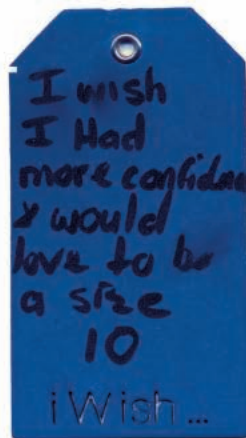 I wish
I Had
more confiden
& would
love to be
a size
10
iWish...